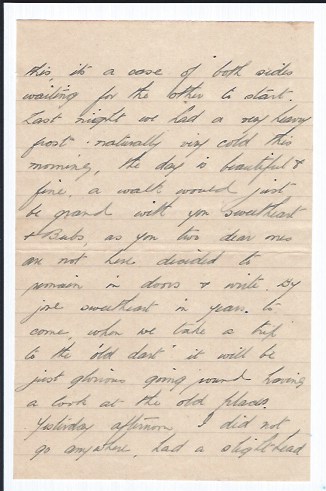 this, it's a case of both sides
waiting for the other to start.
Last night we had a very heavy
frost. naturally very cold this
morning, the day is beautiful &
fine, a walk would just
be grand with you sweetheart
& Bubs, as you two dear ones
are not here decided to
remain in doors & write. By
jove sweetheart in years to
come, when we take a trip
to the 'old dart' it will be
just glorious going round having
a look at the old places.
Yesterday afternoon I did not
go anywhere, had a slight head